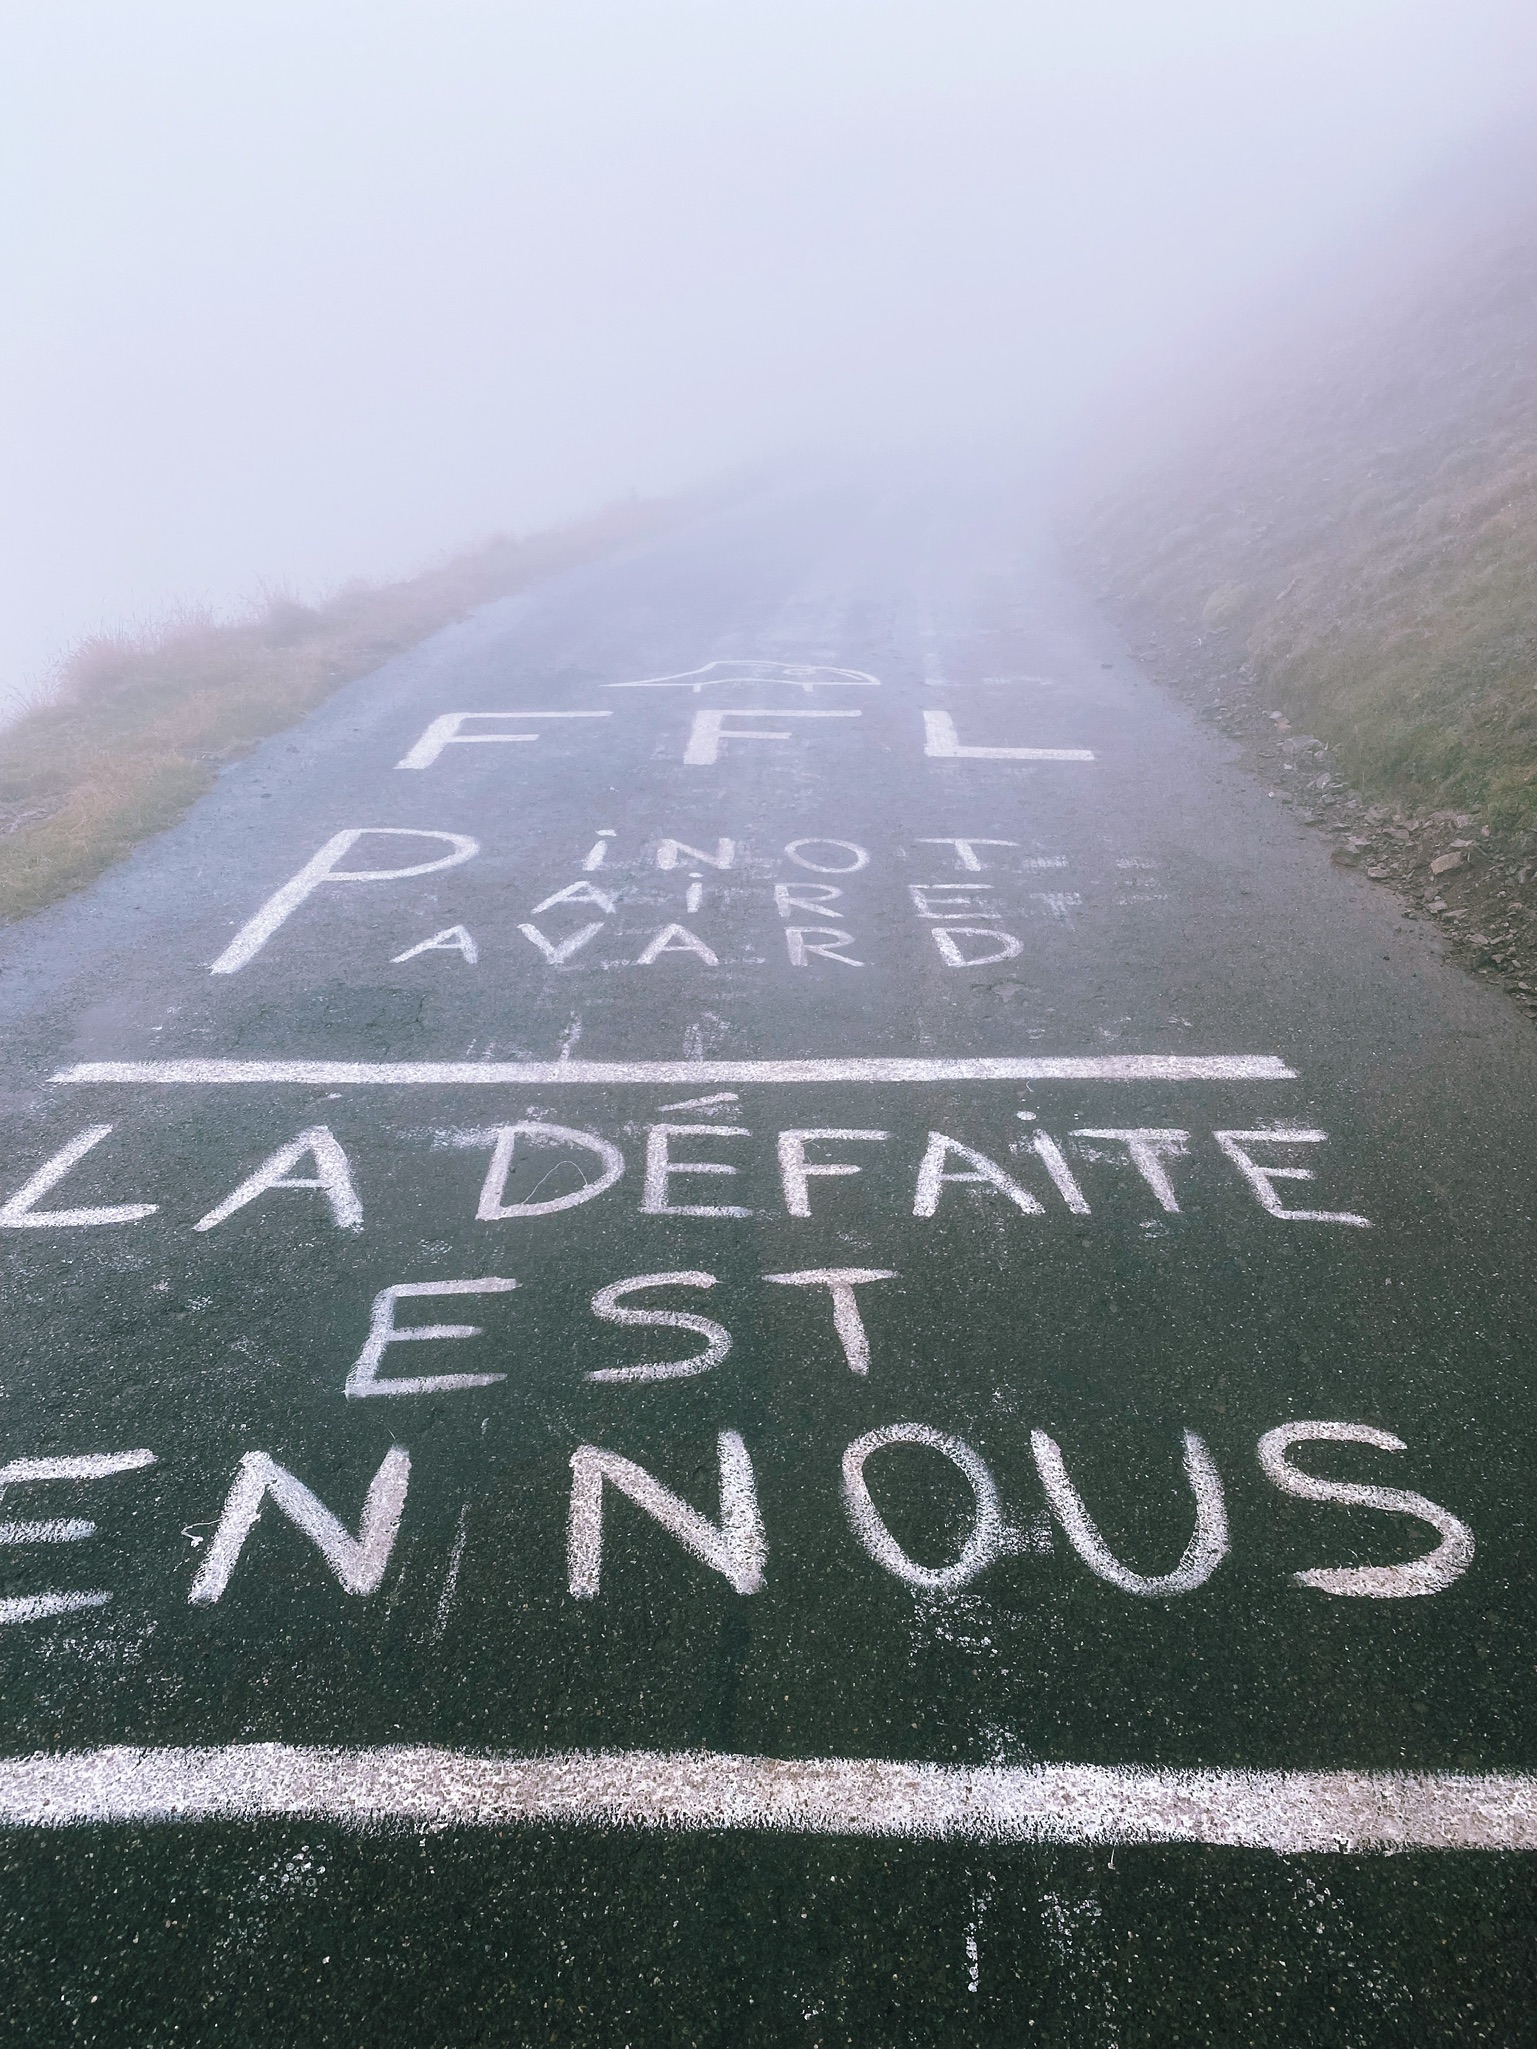 FFL
PiNOT
AiRE
AVARD
LA DÉFAiTE
EST
EN NOUS